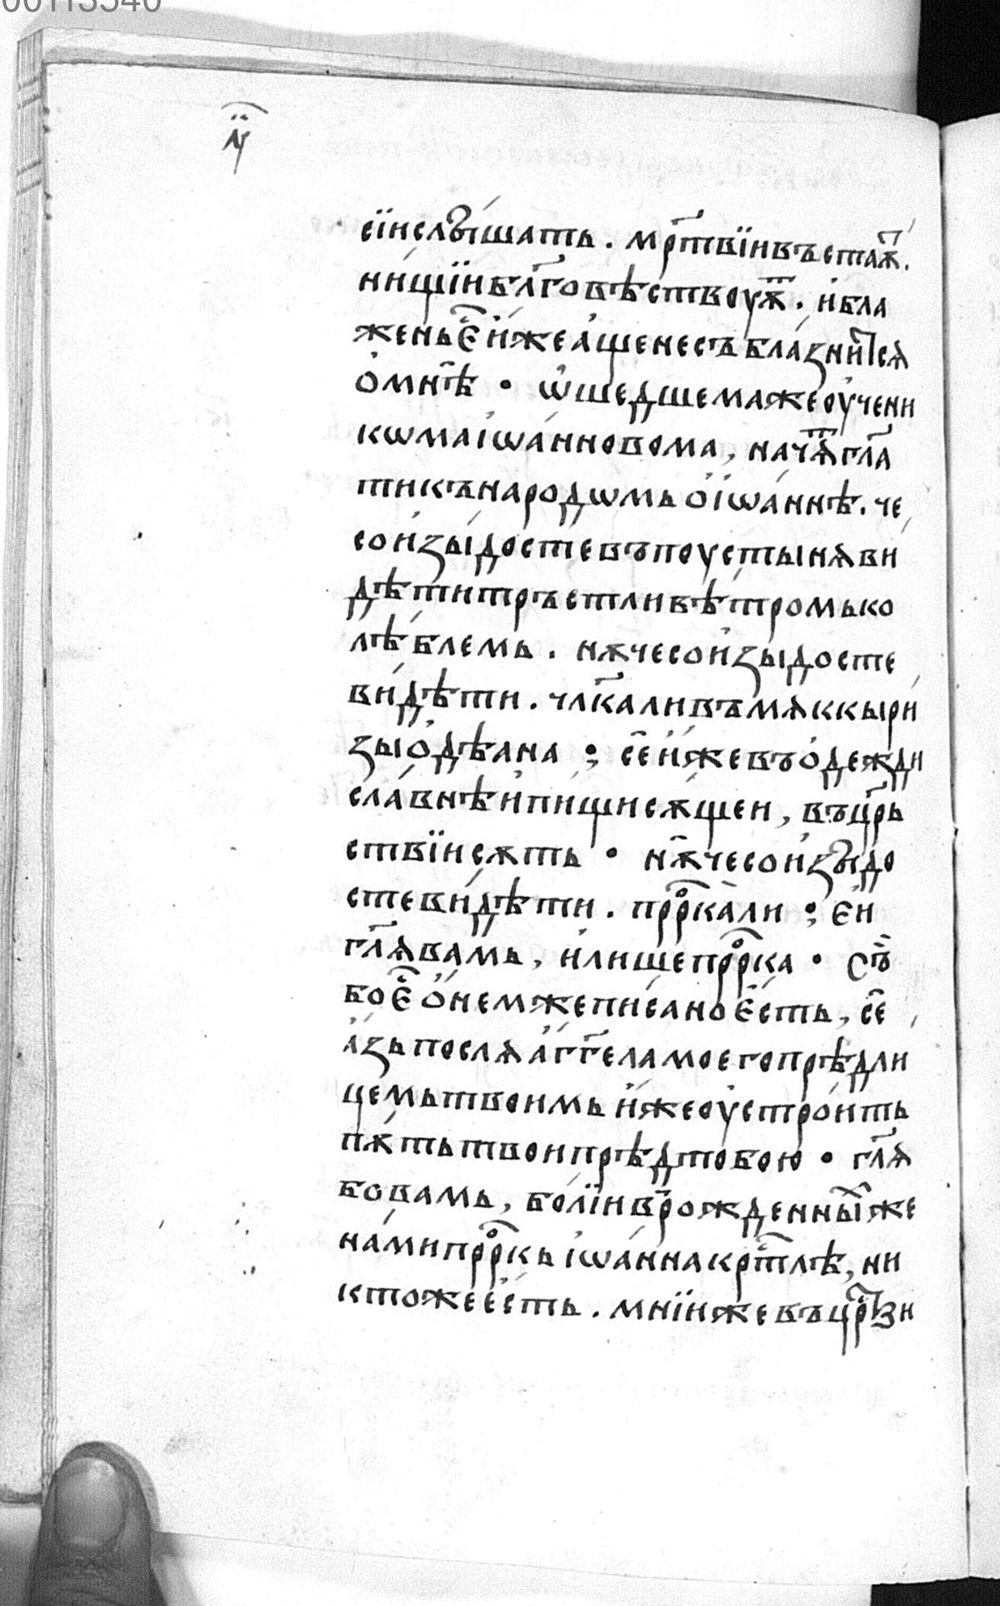 00113540
сїи слы́шать . мр҃твїи въстаѫ҃т .
ни́щїи бл҃говѣствоуѫ҃т . и҆ бла
женъ є҆с҃ и҆же а҆ще не съблазни́тсѧ
ѡ҆ мн҃ѣ · ѿшедшема же оу҆чени
кѡма і҆ѡа́нновома , нача҃т гл҃а
ти къ народѡмь ѡ҆ і҆ѡа́ннѣ . че
со и҆зыдосте въ поустынѧ ви
дѣти тръсти ли вѣтромь ко
лѣблемь . нѫ чесо и҆зыдосте
ви́дѣти . чл҃ка ли въ мѧккы ри
зы о҆дѣана ; се҃ и҆же въ о҆дежди
сла́внѣи и҆ пищи сѫщеи , въ цр҃ь
ствїи сѫть · нѫ҃ чесо и҆зы́до
сте ви́дѣти . прⷪ҇рка ли ; є҆и
гл҃ѧ вамь , и҆ лише прⷪ҇рка · съ҃
бо є҆с҃ о҆ нем же писано є҆сть , се҃
а҆зь послѧ а҆гг҃ела моего прѣд ли
цемь твоимь и҆же оу҆строить
пѫть твои прѣд тобою · гл҃ѧ
бо вамь , болїи в рожденны҃х же
на́ми прⷪ҇ркь і҆ѡанна кр҃тлѣ , ни
ктоже е҆сть . мнїи же въ цр҃ᲂви